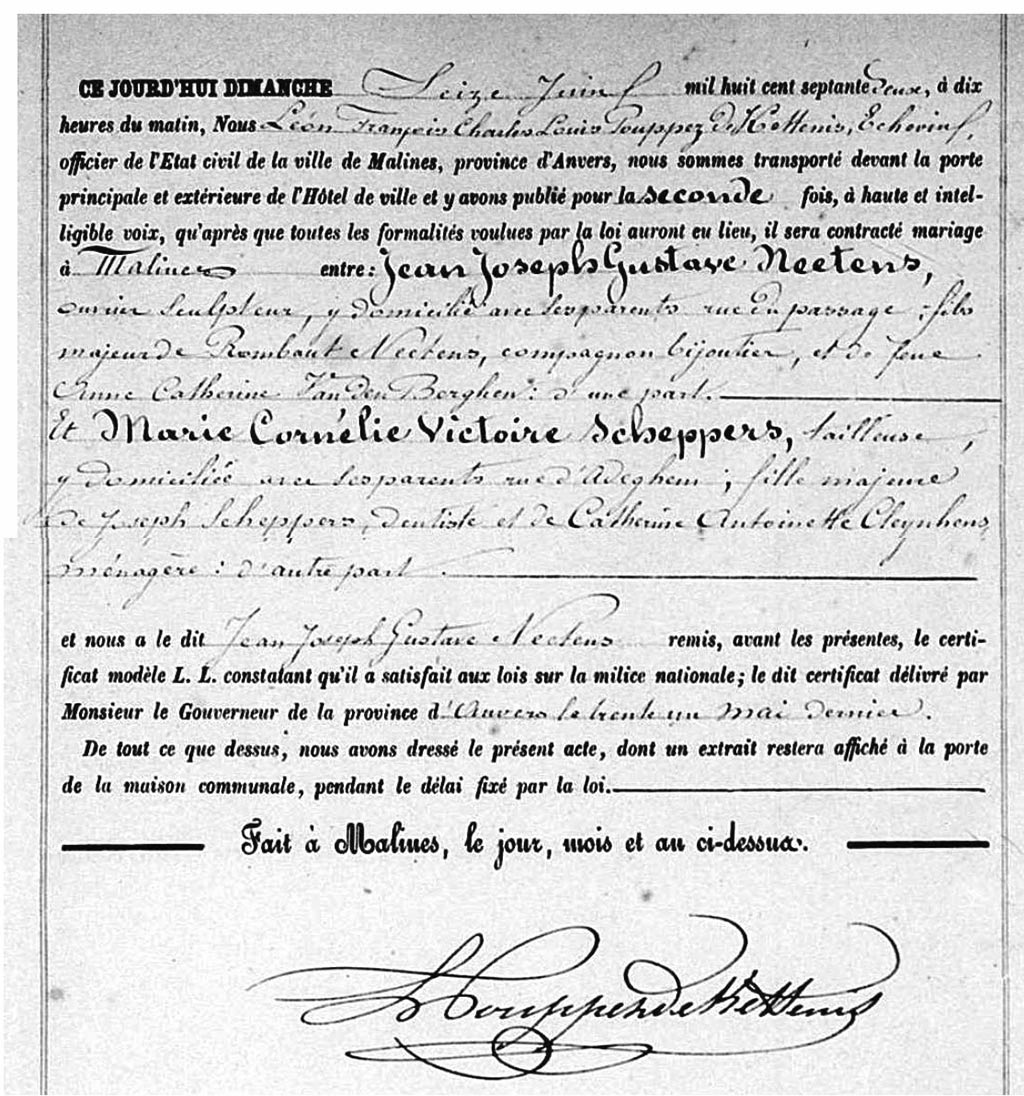 CE JOURD'HUI DIMANCHE Seize Juin mil huit cent septante Deux, à dix
heures du matin, Nous Léon François Charles Louis Pouppez de Kettenis, Echevin,
officier de l'Etat civil de la ville de Malines, province d'Anvers, nous sommes transporté devant la porte
principale et extérieure de l'Hôtel de ville et y avons publié pour la seconde fois, à haute et intel-
ligible voix, qu'après que toutes les formalités voulues par la loi auront eu lieu, il sera contracté mariage
à Malines entre: Jean Joseph Gustave Neetens,
ouvrier sculpteur, y domicilié avec ses parents rue du passage; fils
majeur de Rombaut Neetens, compagnon bijoutier, et de feue
Anne Catherine Van den Berghen: d'une part.
Et Marie Cornélie Victoire Scheppers, tailleuse,
y domiciliée avec ses parents rue d'Adeghem; fille majeure
de Joseph Scheppers, dentiste et de Catherine Antoinette Cleynhens,
ménagère: d'autre part.
et nous a le dit Jean Joseph Gustave Neetens remis, avant les présentes, le certi-
ficat modèle L. L. constatant qu'il a satisfait aux lois sur la milice nationale; le dit certificat délivré par
Monsieur le Gouverneur de la province d'Anvers le trente un mai dernier.
De tout ce que dessus, nous avons dressé le présent acte, dont un extrait restera affiché à la porte
de la maison communale, pendant le délai fixé par la loi.
Fait à Malines, le jour, mois et an ci-dessus.
L Pouppez de Kettenis